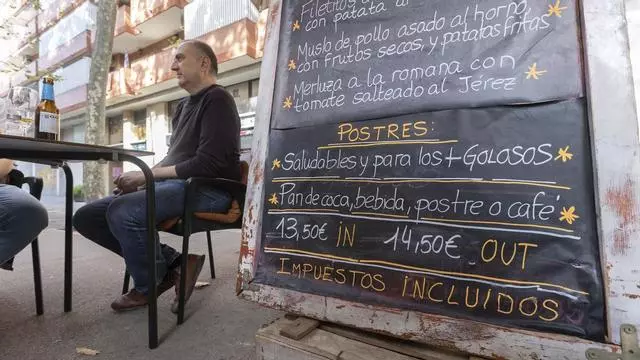 Filetitos
con patata al
Muslo de pollo asado al horno
con frutos secos, y patatas fritas
Merluza a la romana con
tomate salteado al Jérez
POSTRES:
Saludables y para los + GOLOSOS
Pan de coca, bebida, postre o café
13,50€ IN 14,50€ OUT
IMPUESTOS INCLUIDOS